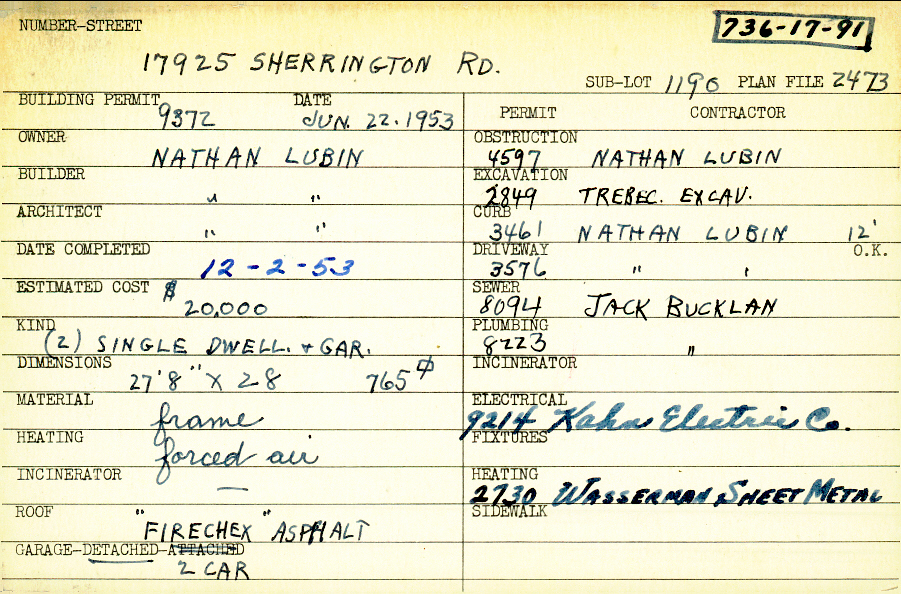 NUMBER-STREET
736-17-91
17925 SHERRINGTON RD.
SUB-LOT 1190 PLAN FILE 2473
BUILDING PERMIT 9372 DATE JUN. 22. 1953
PERMIT CONTRACTOR
OWNER NATHAN LUBIN
OBSTRUCTION 4597 NATHAN LUBIN
BUILDER " "
EXCAVATION 2849 TREBEC. EXCAV.
ARCHITECT " "
CURB 3461 NATHAN LUBIN 12'
DATE COMPLETED 12-2-53
DRIVEWAY 3576 " " O.K.
ESTIMATED COST $20,000
SEWER 8094 JACK BUCKLAN
KIND (2) SINGLE DWELL. + GAR.
PLUMBING 8223 "
DIMENSIONS 27'8" X 28 765
INCINERATOR
MATERIAL frame
ELECTRICAL 9214 Kahn Electric Co.
HEATING forced air
FIXTURES
INCINERATOR —
HEATING 2730 WASSERMAN SHEET METAL
ROOF "FIRECHEX" ASPHALT
SIDEWALK
GARAGE-DETACHED-ATTACHED
2 CAR